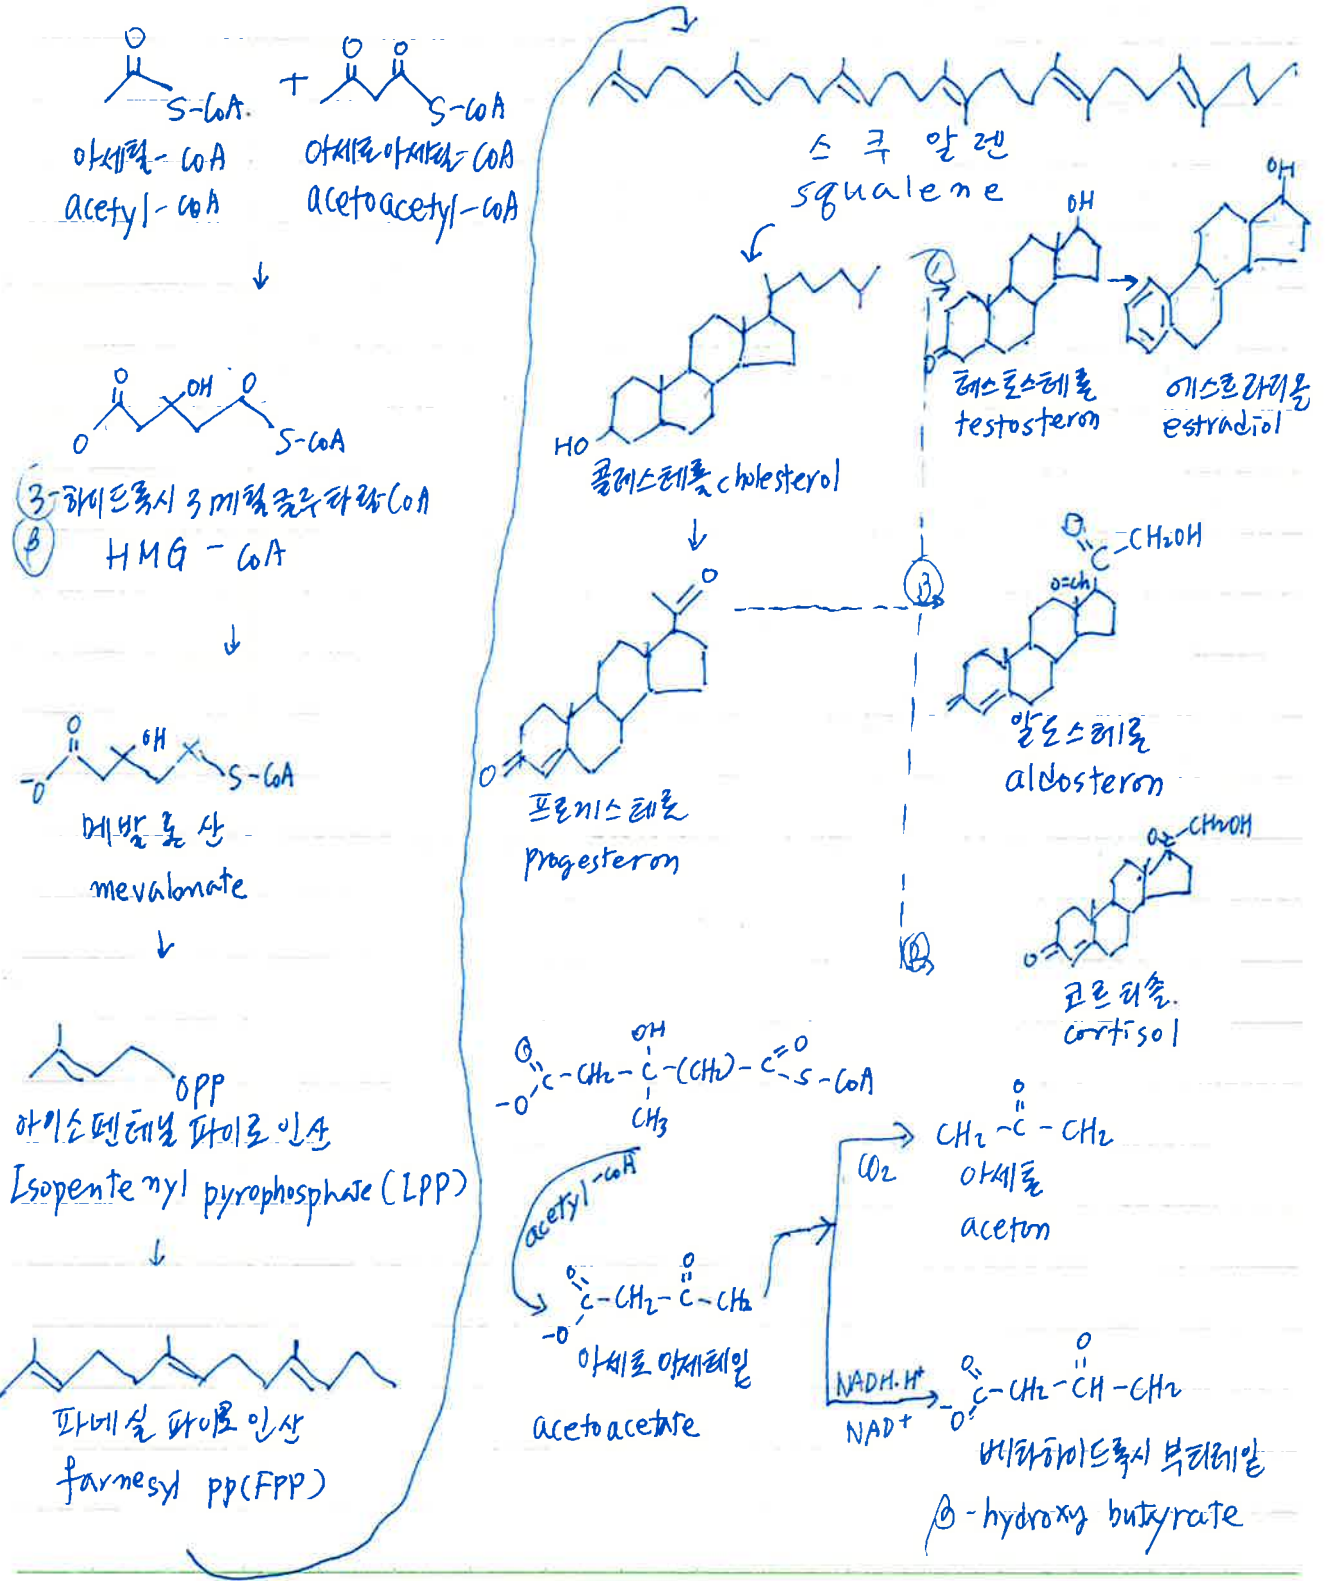 O
S-CoA.
+
O O
S-CoA
아세틸-CoA
acetyl-CoA
아세토아세틸-CoA
acetoacetyl-CoA
↓
O OH O
O
S-CoA
3-하이드록시 3 메틸글루타릴-CoA
β
HMG-CoA
↓
O OH
-O
S-CoA
메발론산
mevalonate
↓
OPP
아이소펜테닐 파이로인산
Isopentenyl pyrophosphate (IPP)
↓
파네실 파이로인산
farnesyl pp(FPP)
스쿠알렌
squalene
HO
콜레스테롤 cholesterol
↓
O
O
프로게스테론
progesteron
OH
O
테스토스테론
testosteron
→
OH
에스트라디올
estradiol
O
C-CH2OH
O=CH
알도스테론
aldosteron
O CH2OH
O
코르티솔.
cortisol
O OH O
C-CH2-C-(CH2)-C
-O CH3 S-CoA
acetyl-CoA
O O
C-CH2-C-CH2
-O
아세토아세테일
acetoacetate
CO2
O
CH2-C-CH2
아세톤
aceton
NADH·H+
NAD+
O O
C-CH2-CH-CH2
-O
베타하이드록시 부티레일
β-hydroxy butyrate